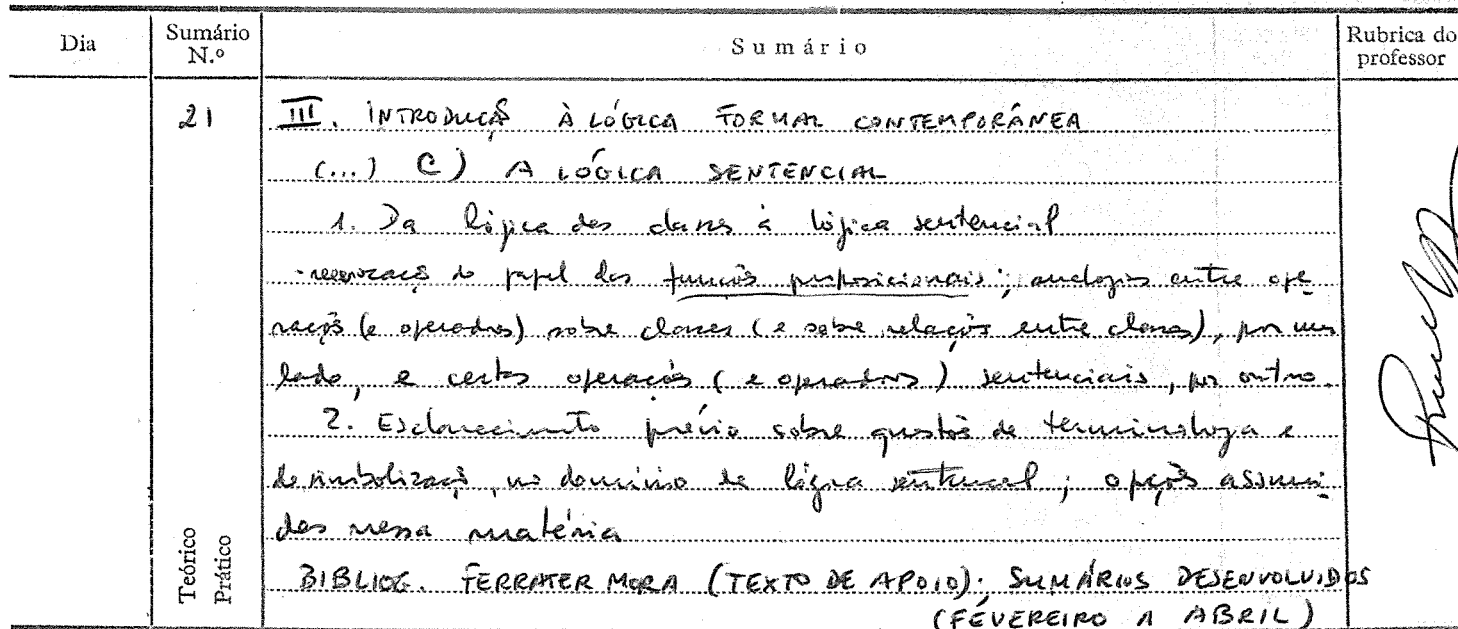 Dia
Sumário N.º
Sumário
Rubrica do professor
21
III. INTRODUÇÃO À LÓGICA FORMAL CONTEMPORÂNEA
(...) C) A LÓGICA SENTENCIAL
1. Da lógica das classes à lógica sentencial
- reevocação do papel das funções proposicionais; analogias entre ope
rações (e operadores) sobre classes (e sobre relações entre classes), por um
lado, e certas operações (e operadores) sentenciais, por outro.
2. Esclarecimento prévio sobre questões de terminologia e
de simbolização, no domínio da lógica sentencial; opções assumi
das nessa matéria
BIBLIOG. FERRATER MORA (TEXTO DE APOIO); SUMÁRIOS DESENVOLVIDOS
(FEVEREIRO A ABRIL)
Teórico
Prático